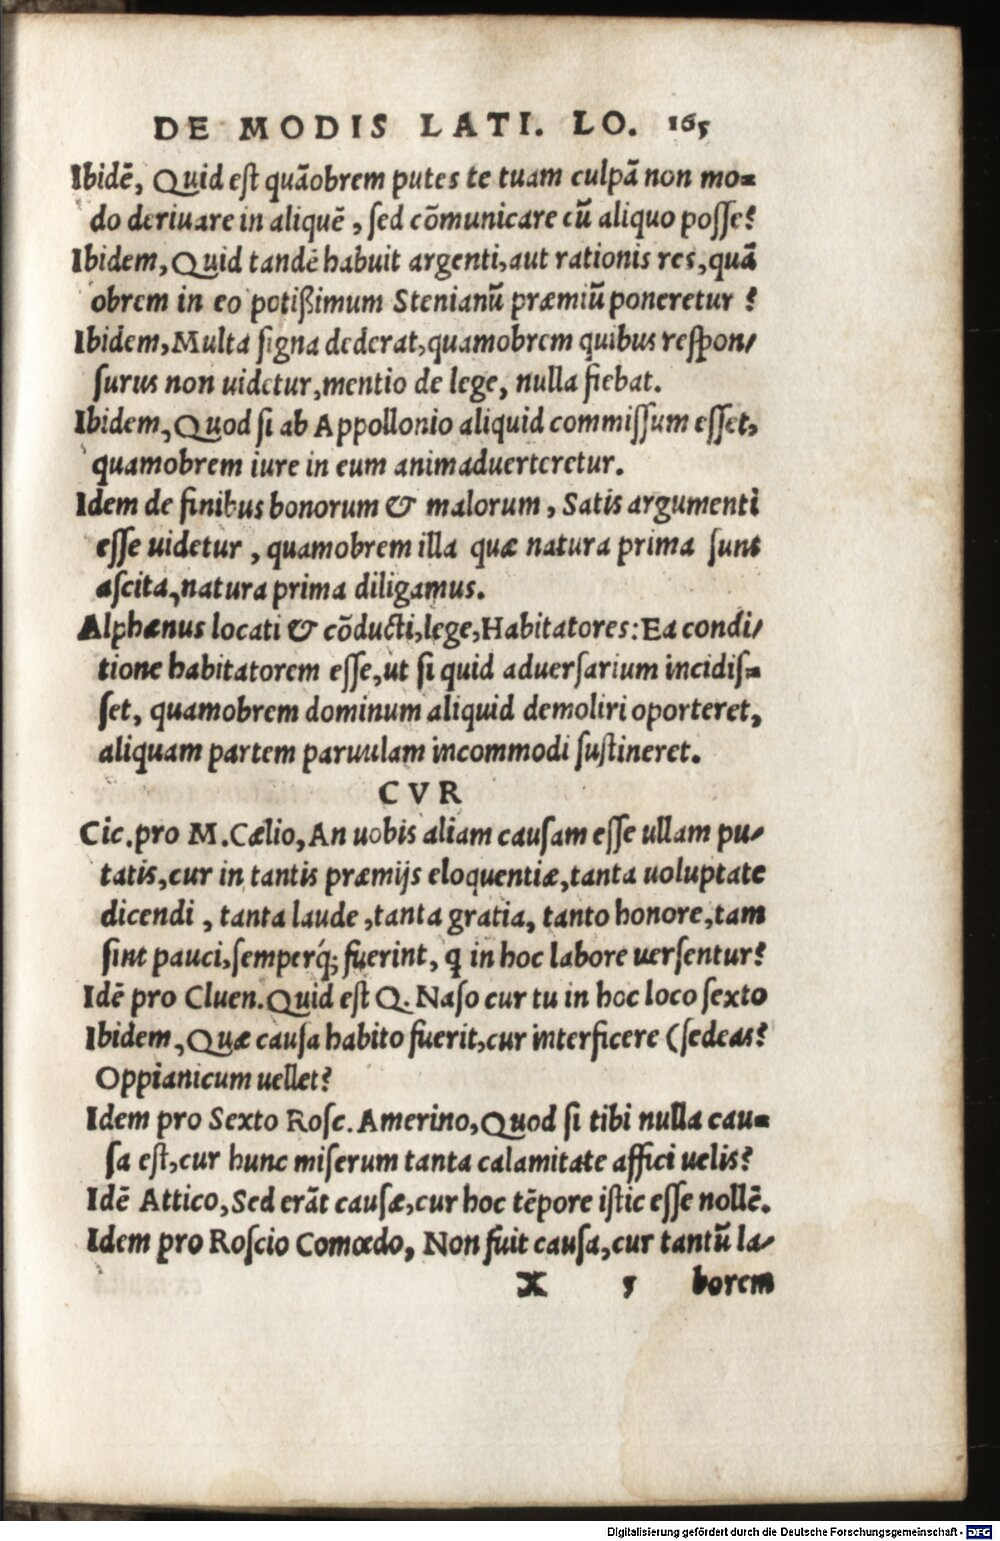 DE MODIS LATI. LO. 165
Ibidē, Quid est quāobrem putes te tuam culpā non mo=
do deriuare in aliquē, sed cōmunicare cū aliquo posse?
Ibidem, Quid tandē habuit argenti, aut rationis res, quā
obrem in eo potißimum Stenianū præmiū poneretur?
Ibidem, Multa signa dederat, quamobrem quibus respon/
surus non uidetur, mentio de lege, nulla fiebat.
Ibidem, Quod si ab Appollonio aliquid commissum esset,
quamobrem iure in eum animaduerteretur.
Idem de finibus bonorum & malorum, Satis argumenti
esse uidetur, quamobrem illa quæ natura prima sunt
ascita, natura prima diligamus.
Alphænus locati & cōducti, lege, Habitatores: Ea condi/
tione habitatorem esse, ut si quid aduersarium incidis=
set, quamobrem dominum aliquid demoliri oporteret,
aliquam partem paruulam incommodi sustineret.
CVR
Cic. pro M. Cælio, An uobis aliam causam esse ullam pu/
tatis, cur in tantis præmijs eloquentiæ, tanta uoluptate
dicendi, tanta laude, tanta gratia, tanto honore, tam
sint pauci, semperq́; fuerint, q in hoc labore uersentur?
Idē pro Cluen. Quid est Q. Naso cur tu in hoc loco sexto
Ibidem, Quæ causa habito fuerit, cur interficere (sedeas?
Oppianicum uellet?
Idem pro Sexto Rosc. Amerino, Quod si tibi nulla cau=
sa est, cur hunc miserum tanta calamitate affici uelis?
Idē Attico, Sed erāt causæ, cur hoc tēpore istic esse nollē.
Idem pro Roscio Comœdo, Non fuit causa, cur tantū la/
X 5 borem
Digitalisierung gefördert durch die Deutsche Forschungsgemeinschaft - DFG